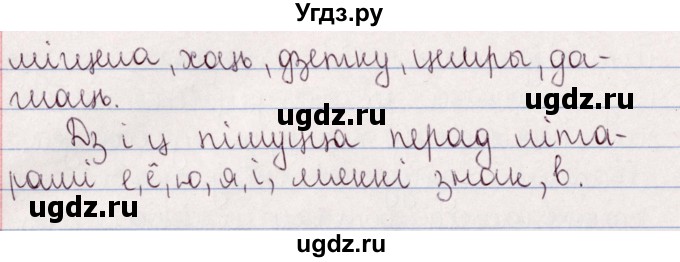 Угдз.ру
міцела, хаць, дзетку, цемры, да-
гнаць.
ugdz.ru ugdz.ru
Дз і ц пішуцца перад літа-
рамі е, ё, ю, я, і, мяккі знак, в.
ugdz.ru ugdz.ru
ugdz.ru